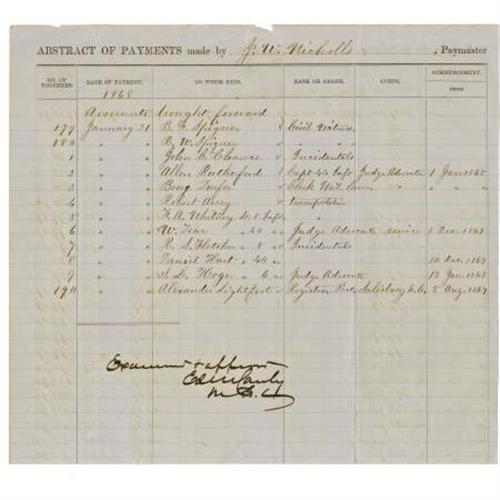 ABSTRACT OF PAYMENTS made by J. W. Nicholls, Paymaster
NO. OF VOUCHERS. DATE OF PAYMENT. TO WHOM PAID. RANK OR GRADE. CORPS. COMMENCEMENT.
FROM
1868
Amounts brought forward
179 January 31 B. F. Spigner Civil Witness
180 " " R. W. Spigner " "
1 " " John C. Chance Incidentals
2 " " Allen Rutherford Capt 44 Inf Judge Advocate 1 Jan 1868
3 " " Benj. Clerk Mil. Com
4 " " Avery transportation
5 " " F. A. Whitney "
6 " " W. 40 " Judge Advocate service 1 Dec 1867
7 " " R. S. Fletcher " 8 " Incidentals
8 " " Daniel Hart " 40 " 10 Dec. 1867
9 " " J. L. Hoge " 6 " Judge Advocate 13 Jan 1868
190 " " Alexander Lightfoot Register Pct. Salisbury N.C. 5 Aug. 1867
Examined &